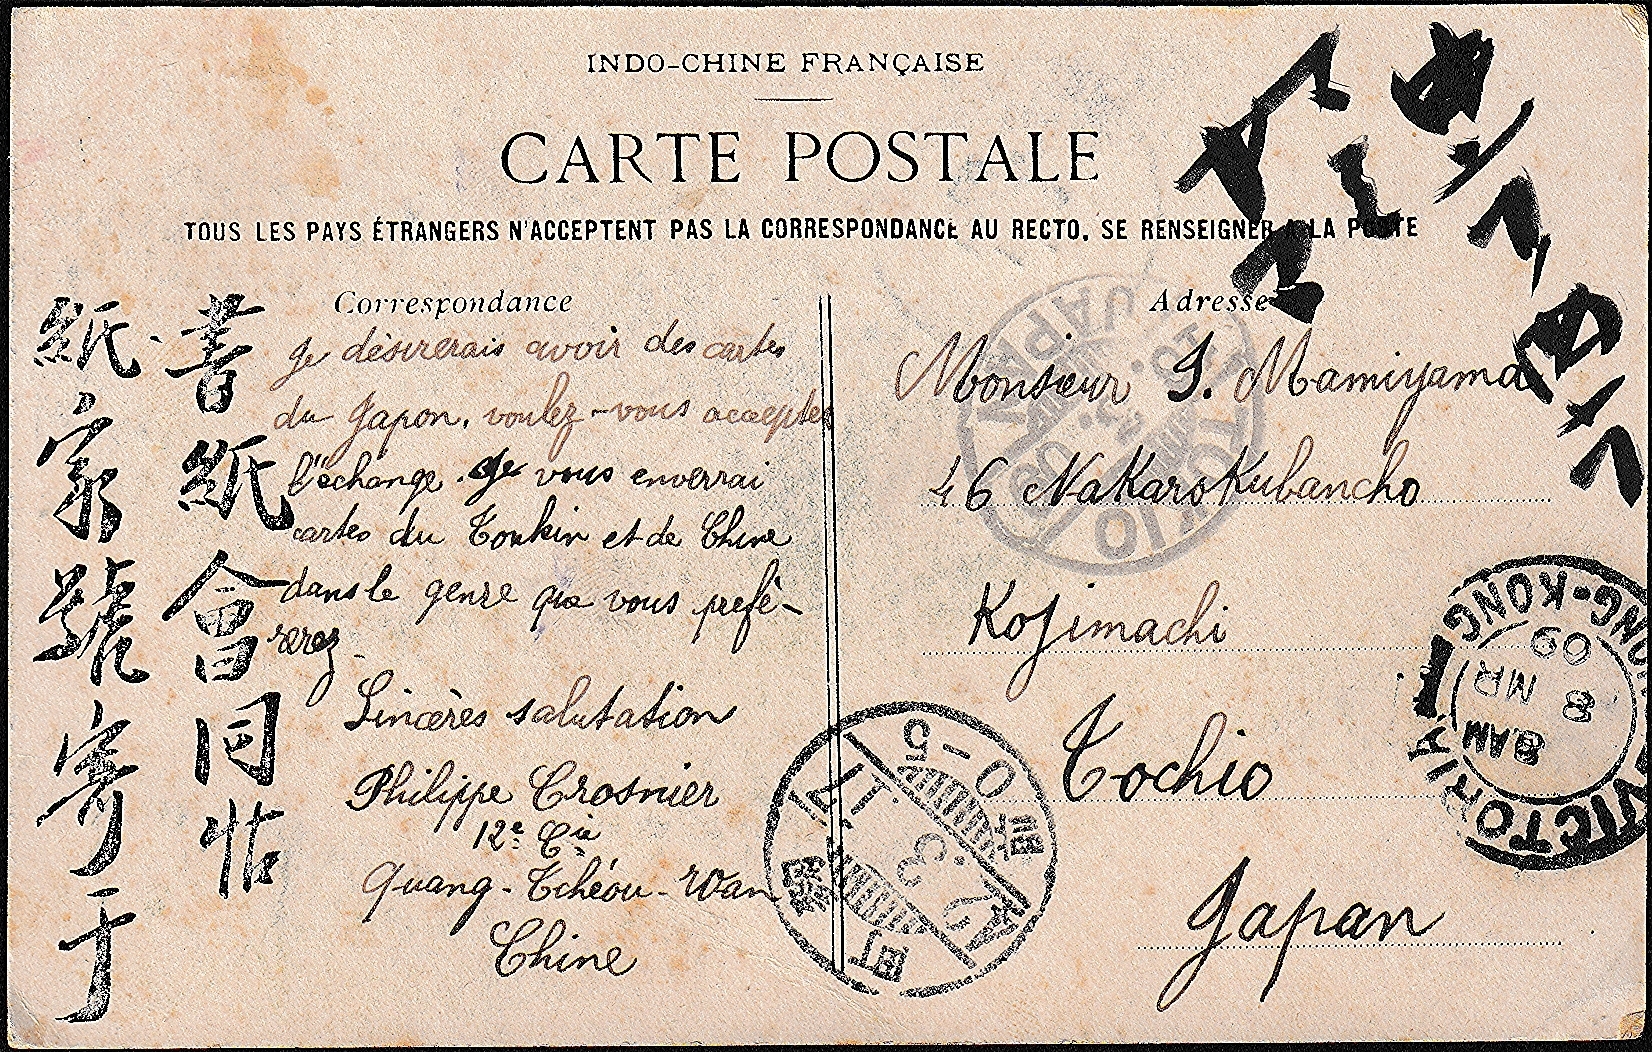 INDO-CHINE FRANÇAISE
CARTE POSTALE
TOUS LES PAYS ÉTRANGERS N'ACCEPTENT PAS LA CORRESPONDANCE AU RECTO, SE RENSEIGNER A LA POSTE
Correspondance
Je désirerais avoir des cartes
du Japon, voulez-vous accepter
l'échange. Je vous enverrai
cartes du Tonkin et de Chine
dans le genre que vous préfé-
rerez.
Sincères salutation
Philippe Crosnier
12e Cie
Quang-Tchéou-Wan
Chine
書紙會同
紙家號寄于
Adresse
Monsieur S. Mamiyama
46 Nakarokubancho
Kojimachi
Tochio
Japan
TOKIO
JAPAN
VICTORIA
HONG-KONG
8 AM
8 MR
09
麴町
17
0-5